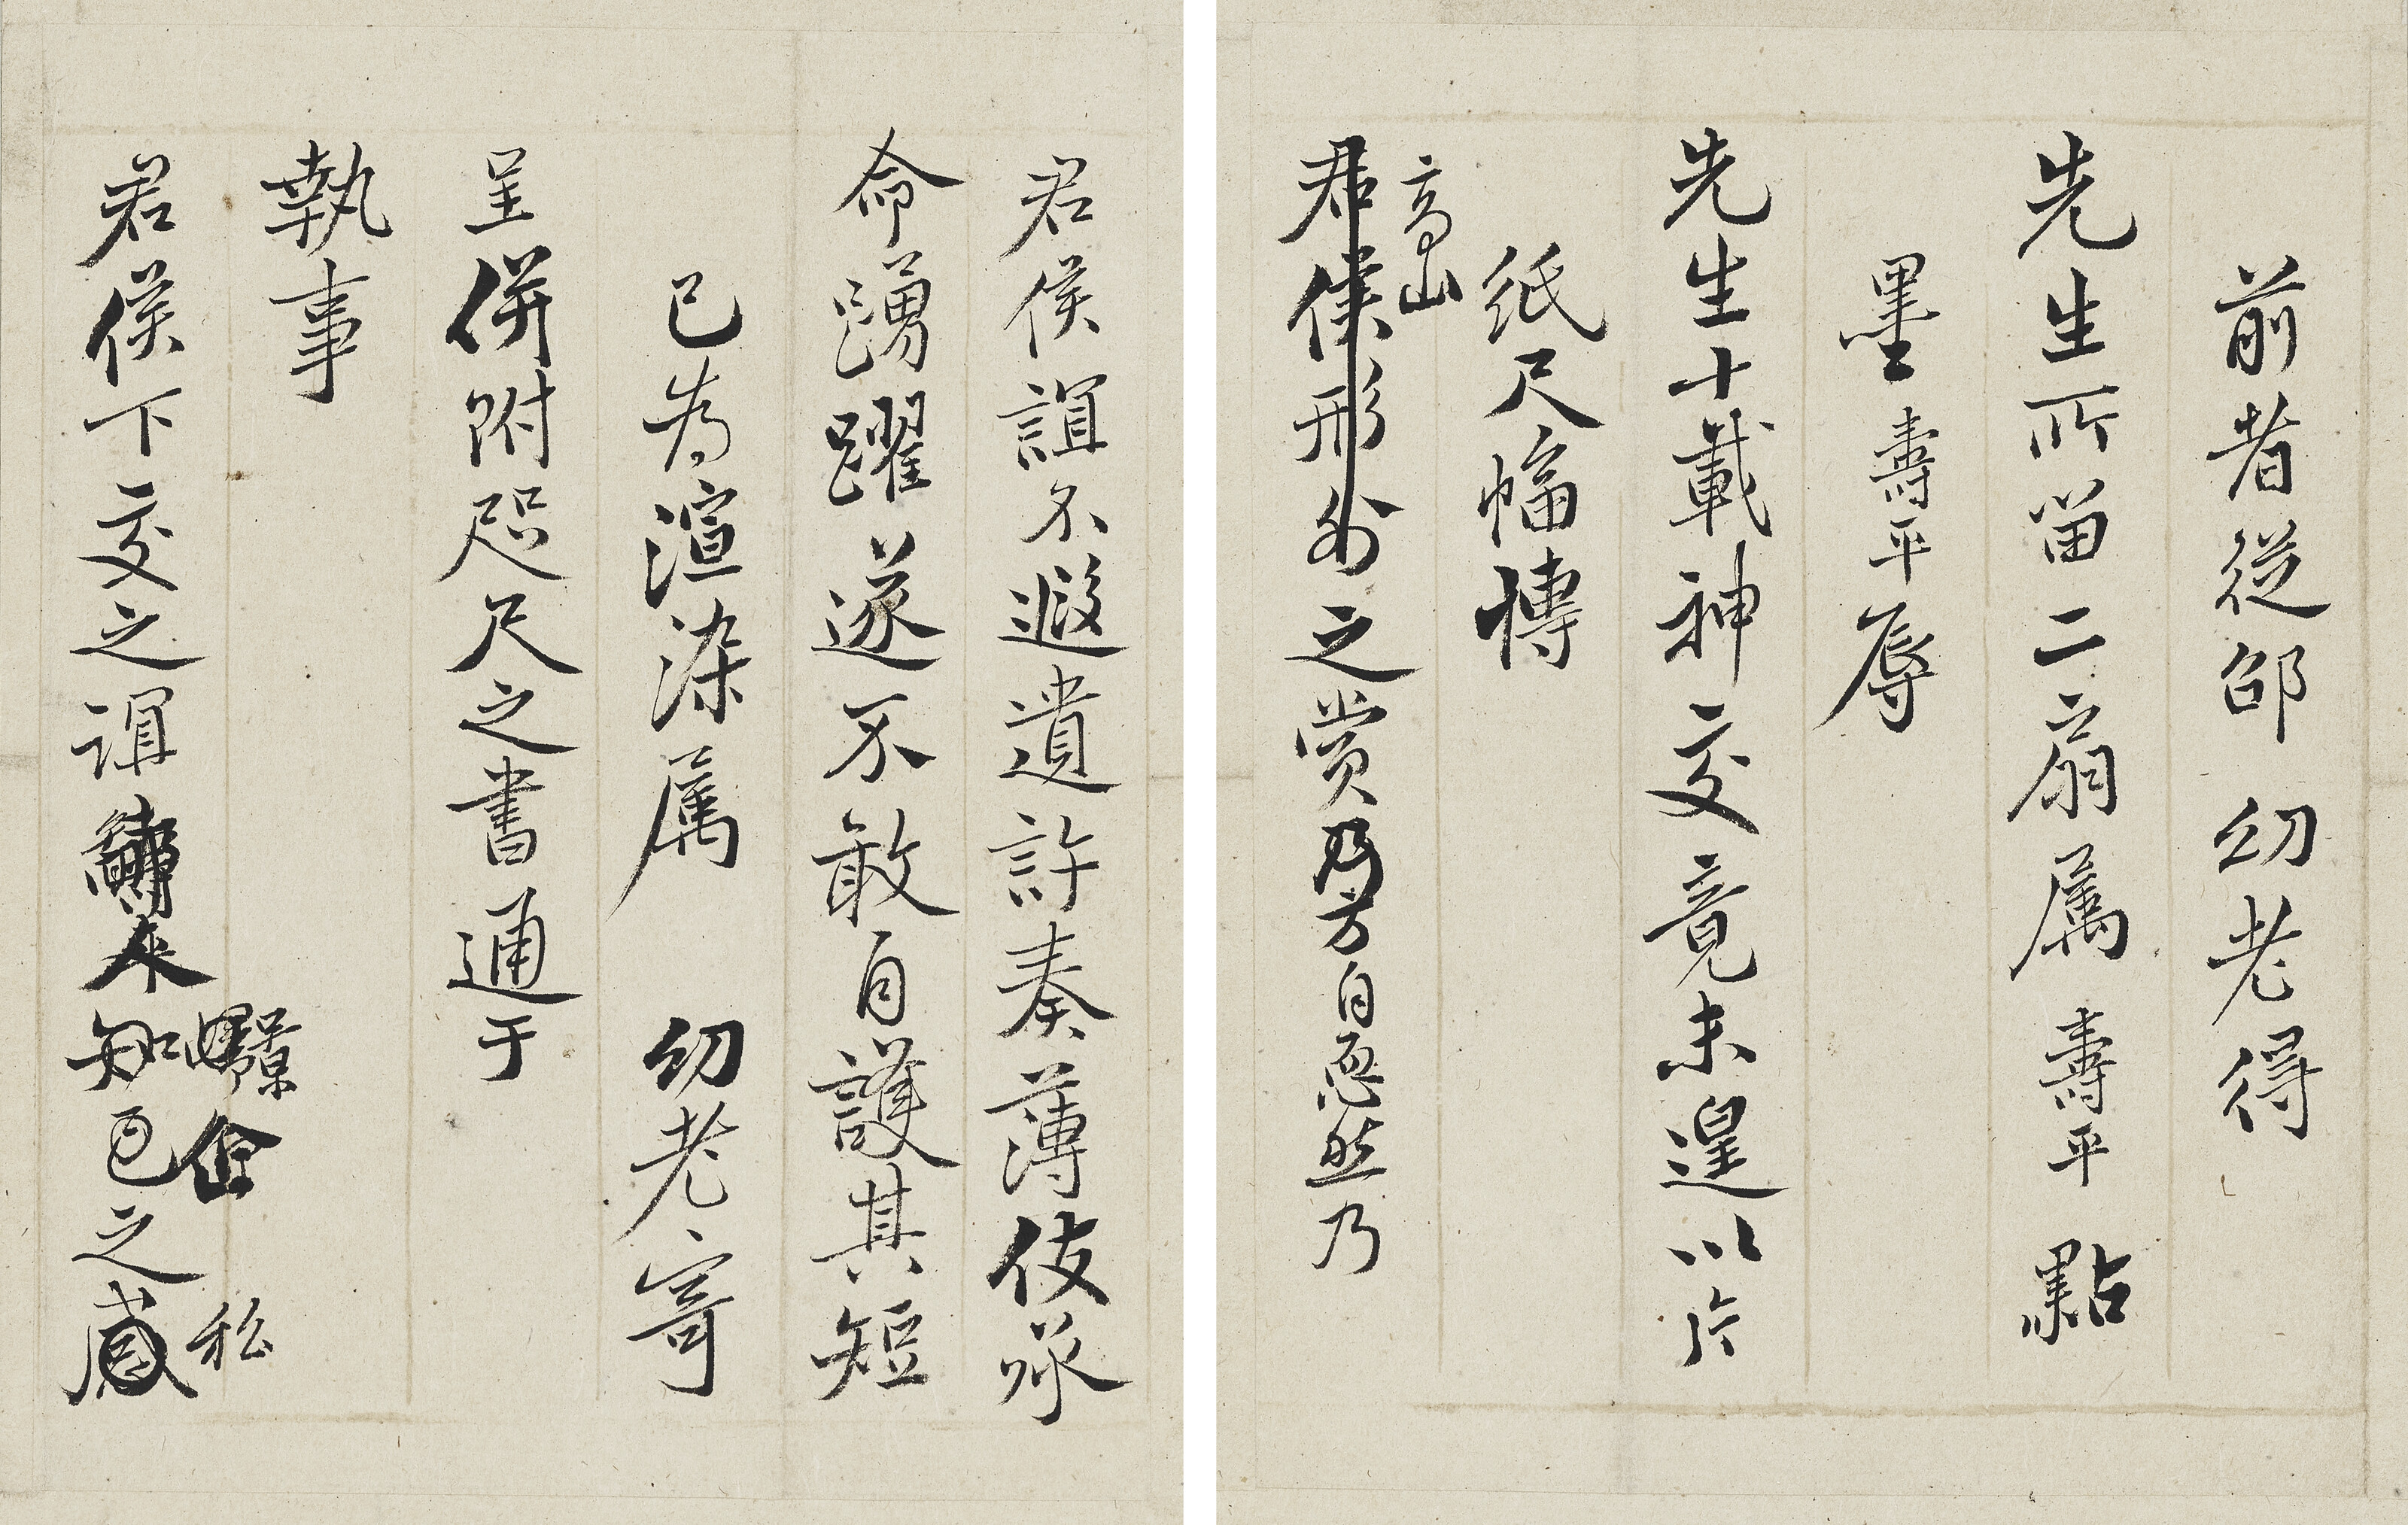 前者從邵 幼老得
先生所留二扇属 壽平 點
墨 壽平 辱
先生十載神交竟未遑以片
紙尺幅博
高山
君侯形外之賞 方自恧然乃
君侯誼不遐遺許奏薄伎承
命踴躍遂不敢自護其短
已为渲染属 幼老寄
呈併附咫尺之書通于
執事
君侯下交之誼 知己之感
企 私